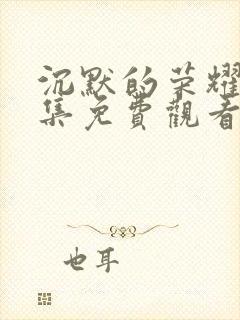 沉默的荣耀
集免費觀看
也耳